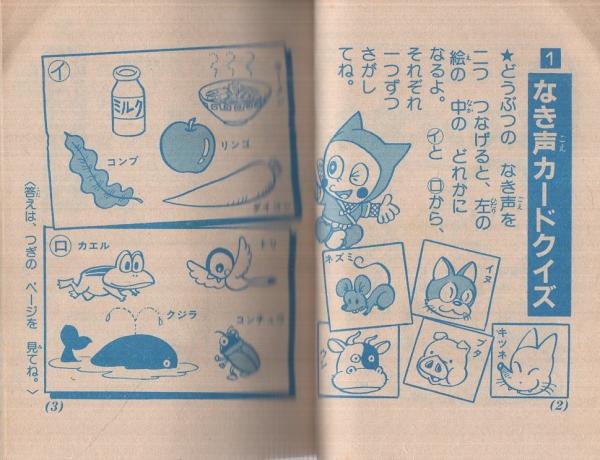 1
なき声カードクイズ
こえ
★どうぶつの なき声を
こえ
二つ つなげると、左の
ひだり
絵の 中の どれかに
え なか
なるよ。 ㋑と ㋺から、
それぞれ
一つずつ
さがし
てね。
ネズミ
イヌ
ウシ
ブタ
キツネ
(2)
イ
ミルク
ラーメン
コンブ
リンゴ
ダイコン
ロ
カエル
トリ
クジラ
コンチュウ
〈答えは、つぎの ページを 見てね。〉
こた み
(3)